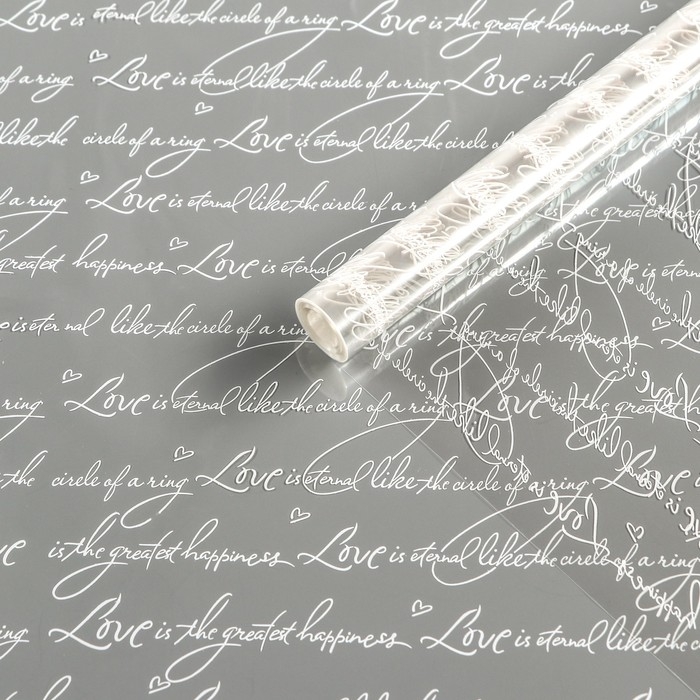 Love is eternal like the circle of a ring Love is the greatest happiness Love
of a ring Love is eternal like the circle of a ring Love is the
like the circle of a ring Love is eternal like the circle of
a ring Love is eternal like the circle of a ri is the greatest
greatest happiness Love is eternal Love is eternal
e is eter nal like the circle of a ring is the greatest happiness
ring Love is eternal like the circle of a ring Love is the greatest
the circle of a ring Love is eternal like the circle of a ring Love
ve is the greatest happiness Love is eternal like the circle of a ring
ing Love is the greatest happiness Love is eternal like the c